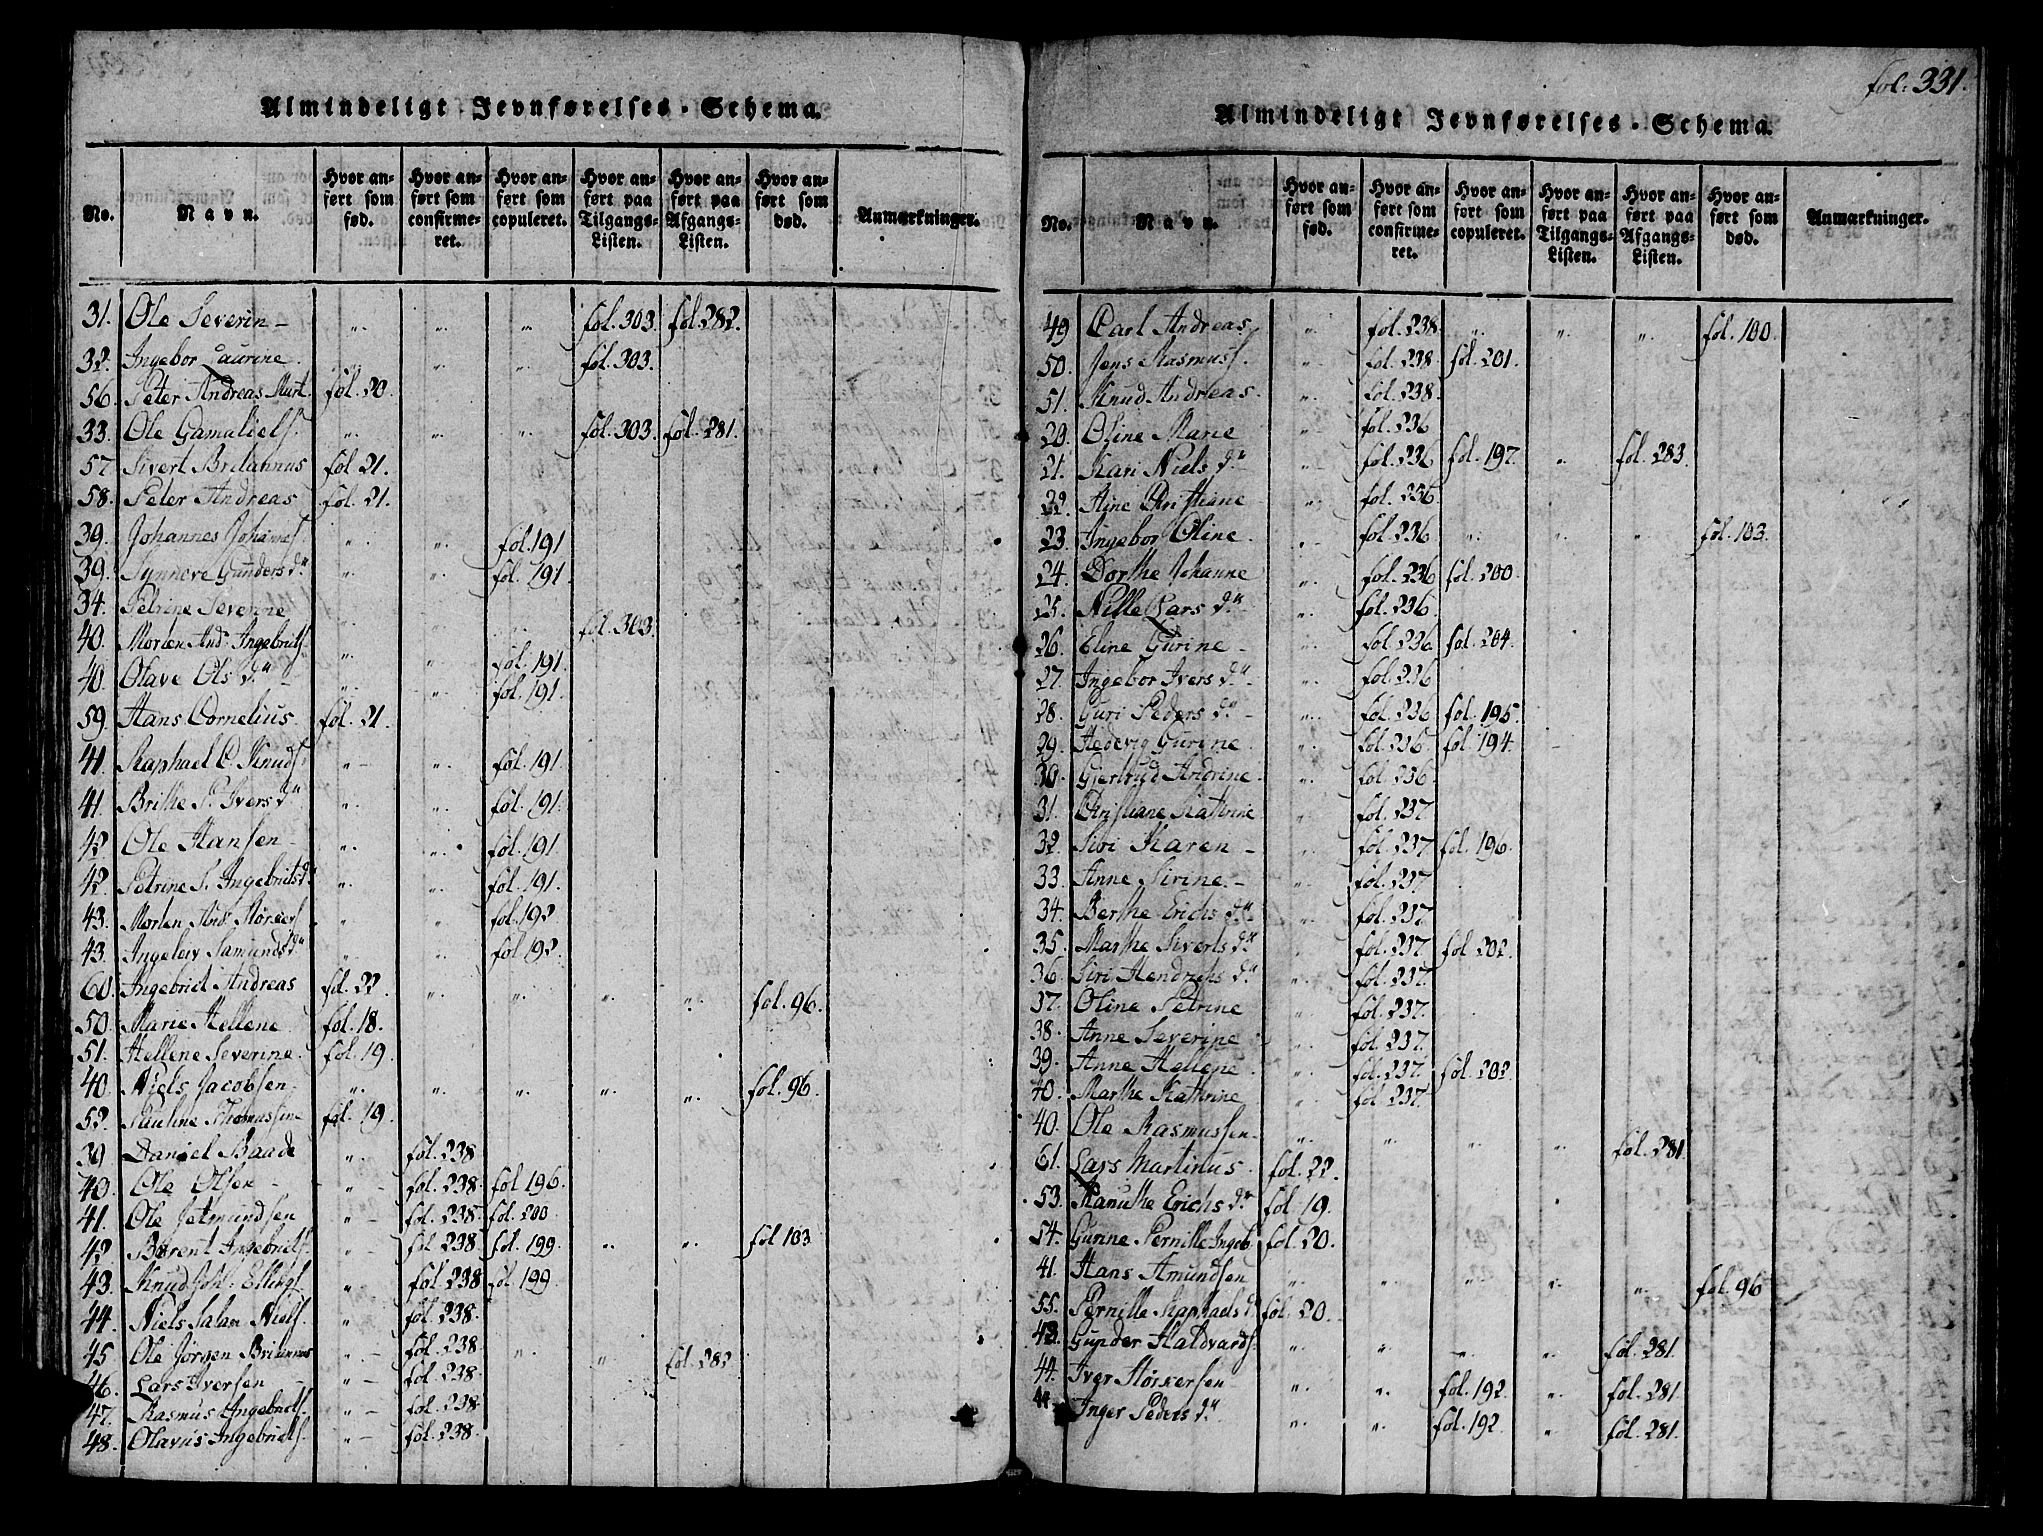 Almindeligt Jevnførelses-Schema.
No. Navn. Hvor anført som fød. Hvor anført som confirmeret. Hvor anført som copuleret. Hvor anført paa Tilgangs-Listen. Hvor anført paa Afgangs-Listen. Hvor anført som død. Anmærkninger.
31. Ole Severin - " " " fol. 303. fol. 282.
32. Ingebor Laurine. " " " fol. 303.
56. Peter Andreas fol. 20.
33. Ole Gamaliels. " " " fol. 303. fol. 281.
57. Sivert Britannus fol. 21.
58. Peter Andreas fol. 21.
39. Johannes Johannes. " " fol. 191
39. Synneve Gunders d. " " fol. 191.
34. Petrine Severine " " " fol. 303.
40. Morten And. Ingebrits. " " fol. 191.
40. Olave Ols d. " " fol. 191.
59. Hans Cornelius. fol. 21.
41. Raphael O. Knuds. " " fol. 191.
41. Brithe P. Ivers d. " " fol. 191.
42. Ole Hansen - " " fol. 191
42. Petrine S. Ingebrits d. " " fol. 191.
43. Morten And. Størkers. " " fol. 192
43. Ingeleiv Samunds d. " " fol. 192.
60. Ingebrict Andreas fol. 22. " " " " fol. 96.
50. Marie Hellene fol. 18.
51. Hellene Severine. fol. 19.
40. Niels Jacobsen. " " " " " fol. 96.
52. Pauline Thomassine fol. 19.
39. Daniel Baade " fol. 238
40. Ole Olsen - " fol. 238. fol 196.
41. Ole Jetmundsen " fol. 238. fol. 200
42. Berent Ingebrits. " fol 238. fol. 199. " " fol 103
43. Knud Joh. Ellings. " fol. 238 fol 199.
44. Niels Salam. Niels. " fol. 238.
45. Ole Jørgen Britannus " fol. 238 " " fol. 282
46. Lars Iversen - " fol. 238.
47. Rasmus Ingebrits. " fol. 238.
48. Olavus Ingebrits. " fol. 238.
fol. 331.
Almindeligt Jevnførelses-Schema.
No. Navn. Hvor anført som fød. Hvor anført som confirmeret. Hvor anført som copuleret. Hvor anført paa Tilgangs-Listen. Hvor anført paa Afgangs-Listen. Hvor anført som død. Anmærkninger.
49 Carl Andreas. " fol. 238. " " " fol. 100.
50. Jens Rasmuss. " fol. 238. fol. 201.
51. Knud Andreas. " fol. 238.
20. Oline Marie " fol. 236
21. Kari Niels d. " fol. 236 fol. 197. " fol. 283.
22. Stine Christiane " fol. 236
23. Ingebor Oline. " fol. 236 " " " fol. 103.
24. Dorthe Johanne " fol. 236 fol. 200.
25. Nille Lars d. " fol. 236.
26. Eline Gurine - " fol. 236 fol. 204.
27. Ingebor Ivers d. " fol. 236
28. Guri Peders d. - " fol. 236 fol. 195.
29. Hedevig Gurine. " fol. 236 fol 194.
30. Gjertrud Andrine. " fol. 236.
31. Christiane Kathrine " fol. 237.
32. Sivi Karen - " fol. 237 fol. 196.
33. Anne Sirine. - " fol. 237
34. Berthe Erichs d. " fol. 237.
35. Marthe Siverts d. " fol. 237 fol 202.
36. Siri Hendrichs d. " fol. 237.
37. Oline Petrine " fol. 237.
38. Anne Severine " fol. 237.
39. Anne Hellene " fol. 237. fol. 202
40. Marthe Kathrine " fol. 237.
40. Ole Rasmussen. " " " " fol. 281.
61. Lars Martinus. fol. 22.
53. Ranuthe Erichs d. fol 19.
54. Gurine Pernille Ingeb. fol. 20.
41. Hans Amundsen " " " " " fol. 96
55. Pernille Raphaels d. fol. 20.
43. Gunder Haldvards. " " " " fol. 281.
44. Iver Størkersen " " fol. 192. " fol. 281
44. Inger Peders d. " " fol. 192 " fol. 281.